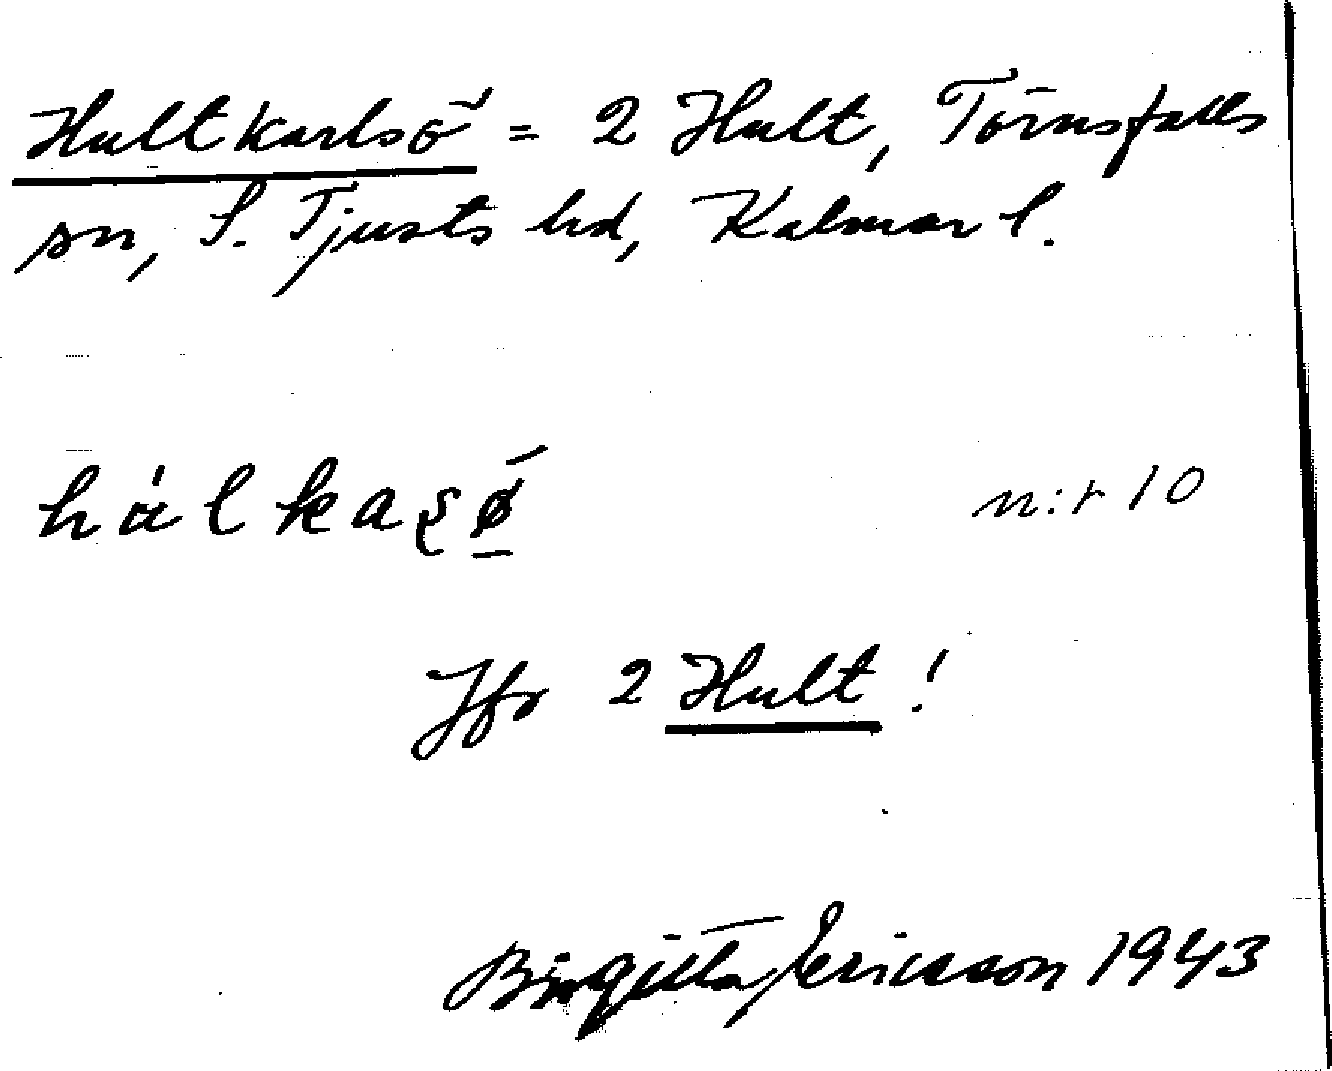 Hultkarlsö = 2 Hult, Törnsfalls
sn, S. Tjusts hd, Kalmar l.
hálkaʂǿ̱ n:r 10
Jfr 2 Hult!
Birgitta Ericsson 1943